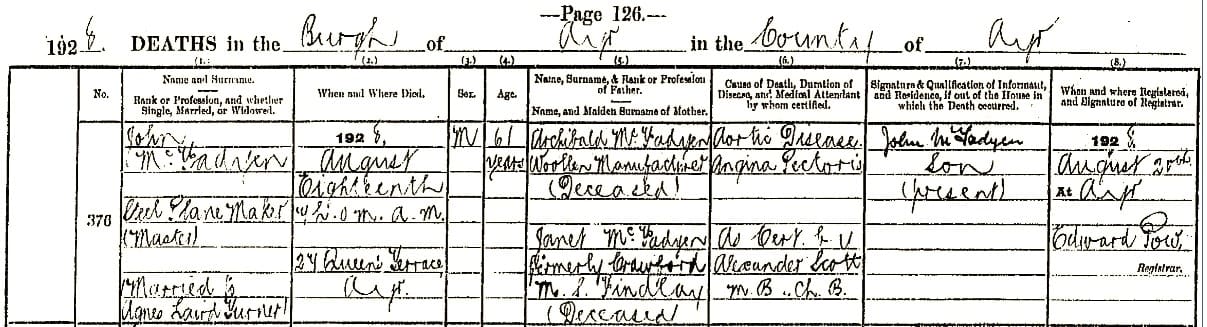 —Page 126.—
1928. DEATHS in the Burgh of Ayr in the County of Ayr
(1.) (2.) (3.) (4.) (5.) (6.) (7.) (8.)
No.
Name and Surname.
Rank or Profession, and whether
Single, Married, or Widowed.
When and Where Died.
Sex.
Age.
Name, Surname, & Rank or Profession
of Father.
Name, and Maiden Surname of Mother.
Cause of Death, Duration of
Disease, and Medical Attendant
by whom certified.
Signature & Qualification of Informant,
and Residence, if out of the House in
which the Death occurred.
When and where Registered,
and Signature of Registrar.
376
John
McFadyen
Plane Maker
(Master)
(Married to
Agnes Laird Turner)
1928,
August
Eighteenth
m. a.m.
27 Queen's Terrace
Ayr.
M
61
years
Archibald McFadyen
Woollen Manufacturer
(Deceased)
Janet McFadyen
formerly Crawford
M. S. Findlay
(Deceased)
Aortic Disease
Angina Pectoris
As Cert. by
Alexander Scott
M.B., Ch.B.
John McFadyen
Son
(present)
1928,
August 20th
At Ayr
Edward Pow,
Registrar.